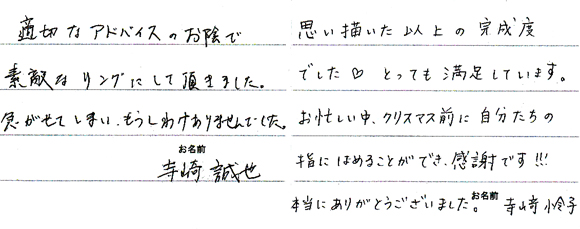 適切なアドバイスのお陰で
素敵なリングにして頂きました。
急がせてしまい、もうしわけありませんでした。
お名前
寺崎 誠也
思い描いた以上の完成度
でした♡ とっても満足しています。
お忙しい中、クリスマス前に自分たちの
指にはめることができ、感謝です!!!
本当にありがとうございました。
お名前
寺崎 怜子